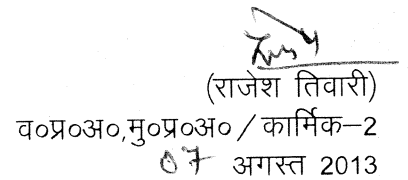 (राजेश तिवारी)
व०प्र०अ०,मु०प्र०अ० / कार्मिक–2
07 अगस्त 2013